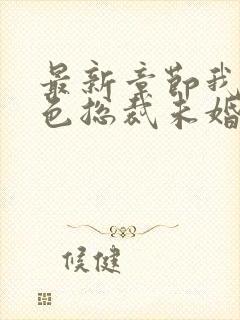 最新章节我
色总裁未婚
候健